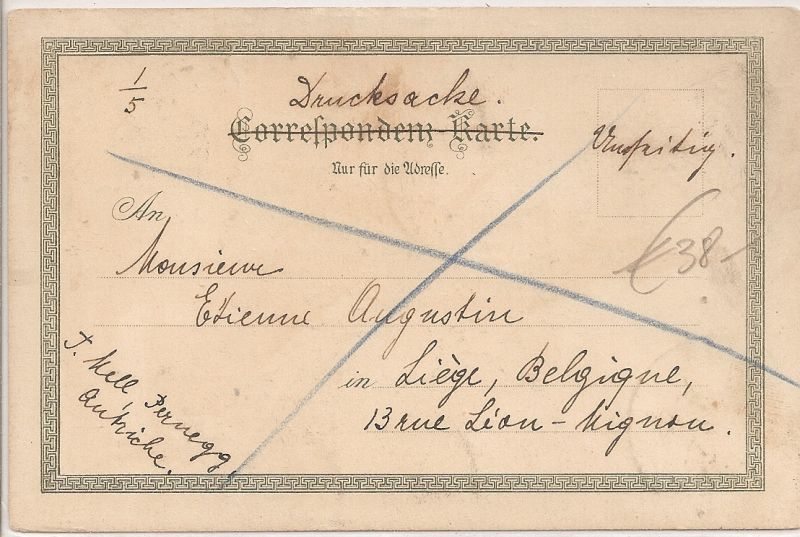 1/5
Drucksache.
Correspondenz-Karte.
Umseitig.
Nur für die Adresse.
An
€38-
Monsieur
Etienne Augustin
in Liège, Belgique,
13 rue Léon-Mignon.
T. Hell, Pernegg,
Autriche.